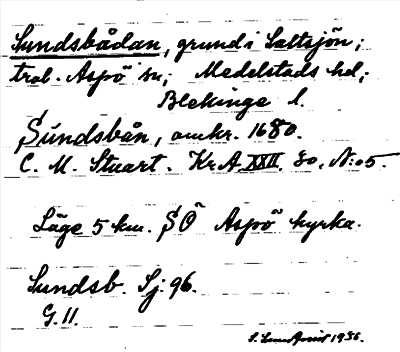 Sundsbådan, grund i Saltsjön;
trol. Aspö sn; Medelstads hd;
Blekinge l.
Sundsbån, omkr. 1680.
C. M. Stuart. KrA XXII. 80. N:o 5.
Läge 5 km. SÖ Aspö kyrka.
Sundsb. Sj: 96.
G. 11.
1936.